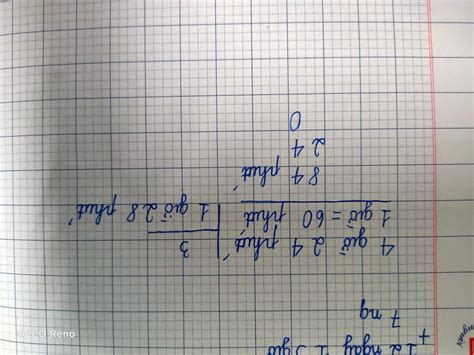 7 ng
4 giờ 24 phút 3
1 giờ = 60 phút 1 giờ 28 phút
84 phút
24
0
Reno